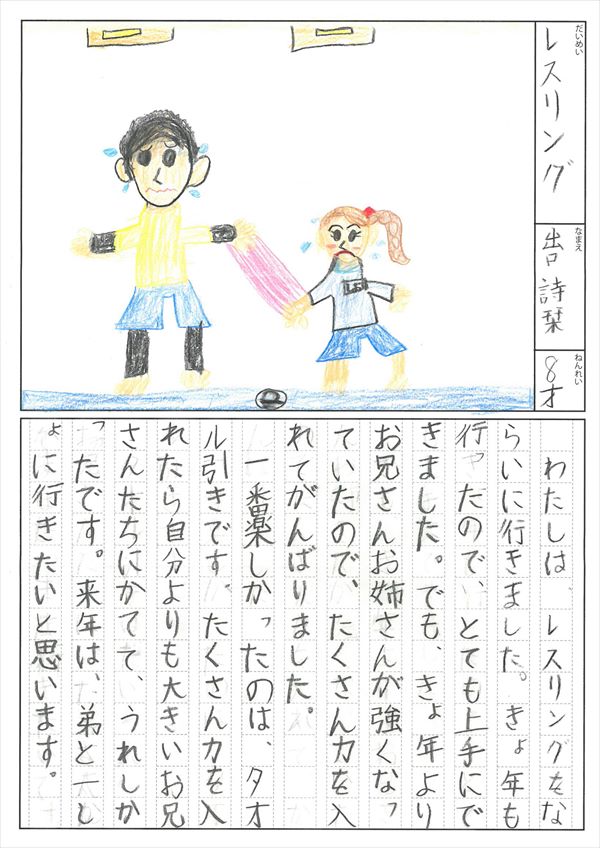 だいめい
レスリング
なまえ
出口詩栞
ねんれい
8才
わたしは、レスリングをな
らいに行きました。きょ年も
行ったので、とても上手にで
きました。でも、きょ年より
お兄さんお姉さんが強くなっ
ていたので、たくさん力を入
れてがんばりました。
一番楽しかったのは、タオ
ル引きです。たくさん力を入
れたら自分よりも大きいお兄
さんたちにかてて、うれしか
ったです。来年は、弟と一し
ょに行きたいと思います。